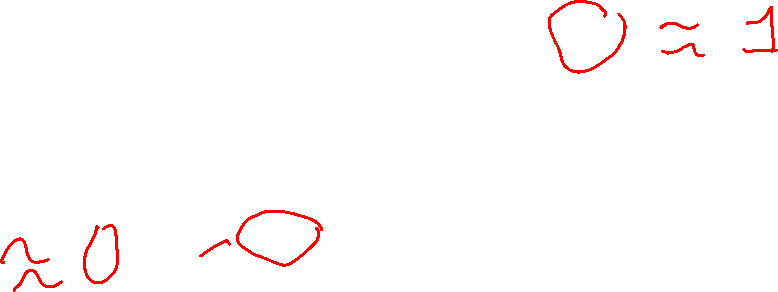 ≈ 1
≈ 0